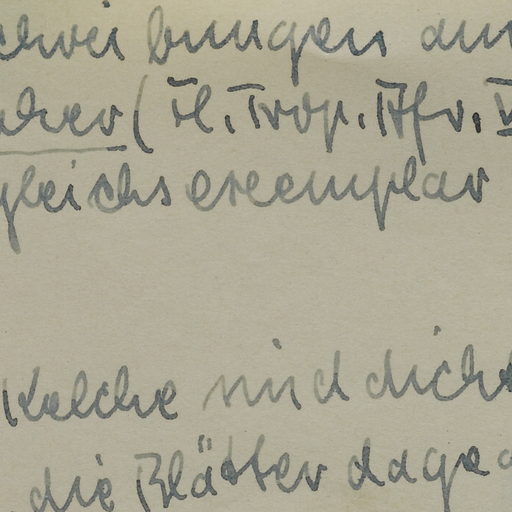 chreibungen un
aker (Fl. Trop. Afr. V
gleichsexemplar
Kelche sind dicht
die Blätter dage